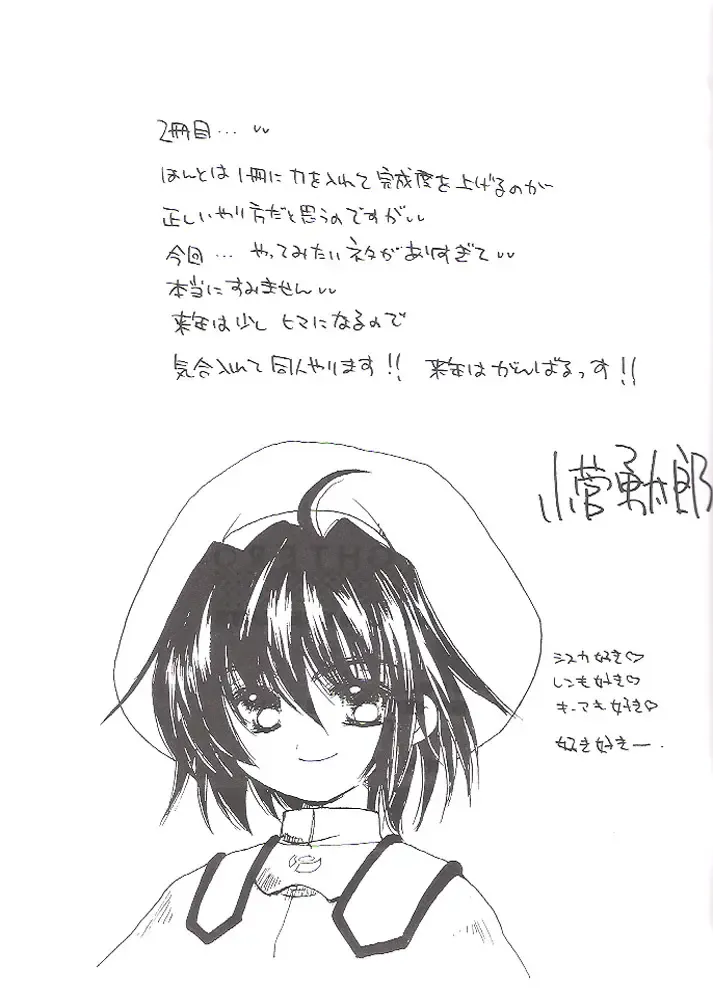 2冊目…
ほんとは1冊に力を入れて完成度を上げるのが
正しいやり方だと思うのですが
今回… やってみたいネタがありすぎて
本当にすみません
来年は少し ヒマになるので
気合入れて同人やります!! 来年はがんばるっす!!
小菅勇太郎
シスカ好き♡
しても好き♡
とっても好き♡
好き好きー.